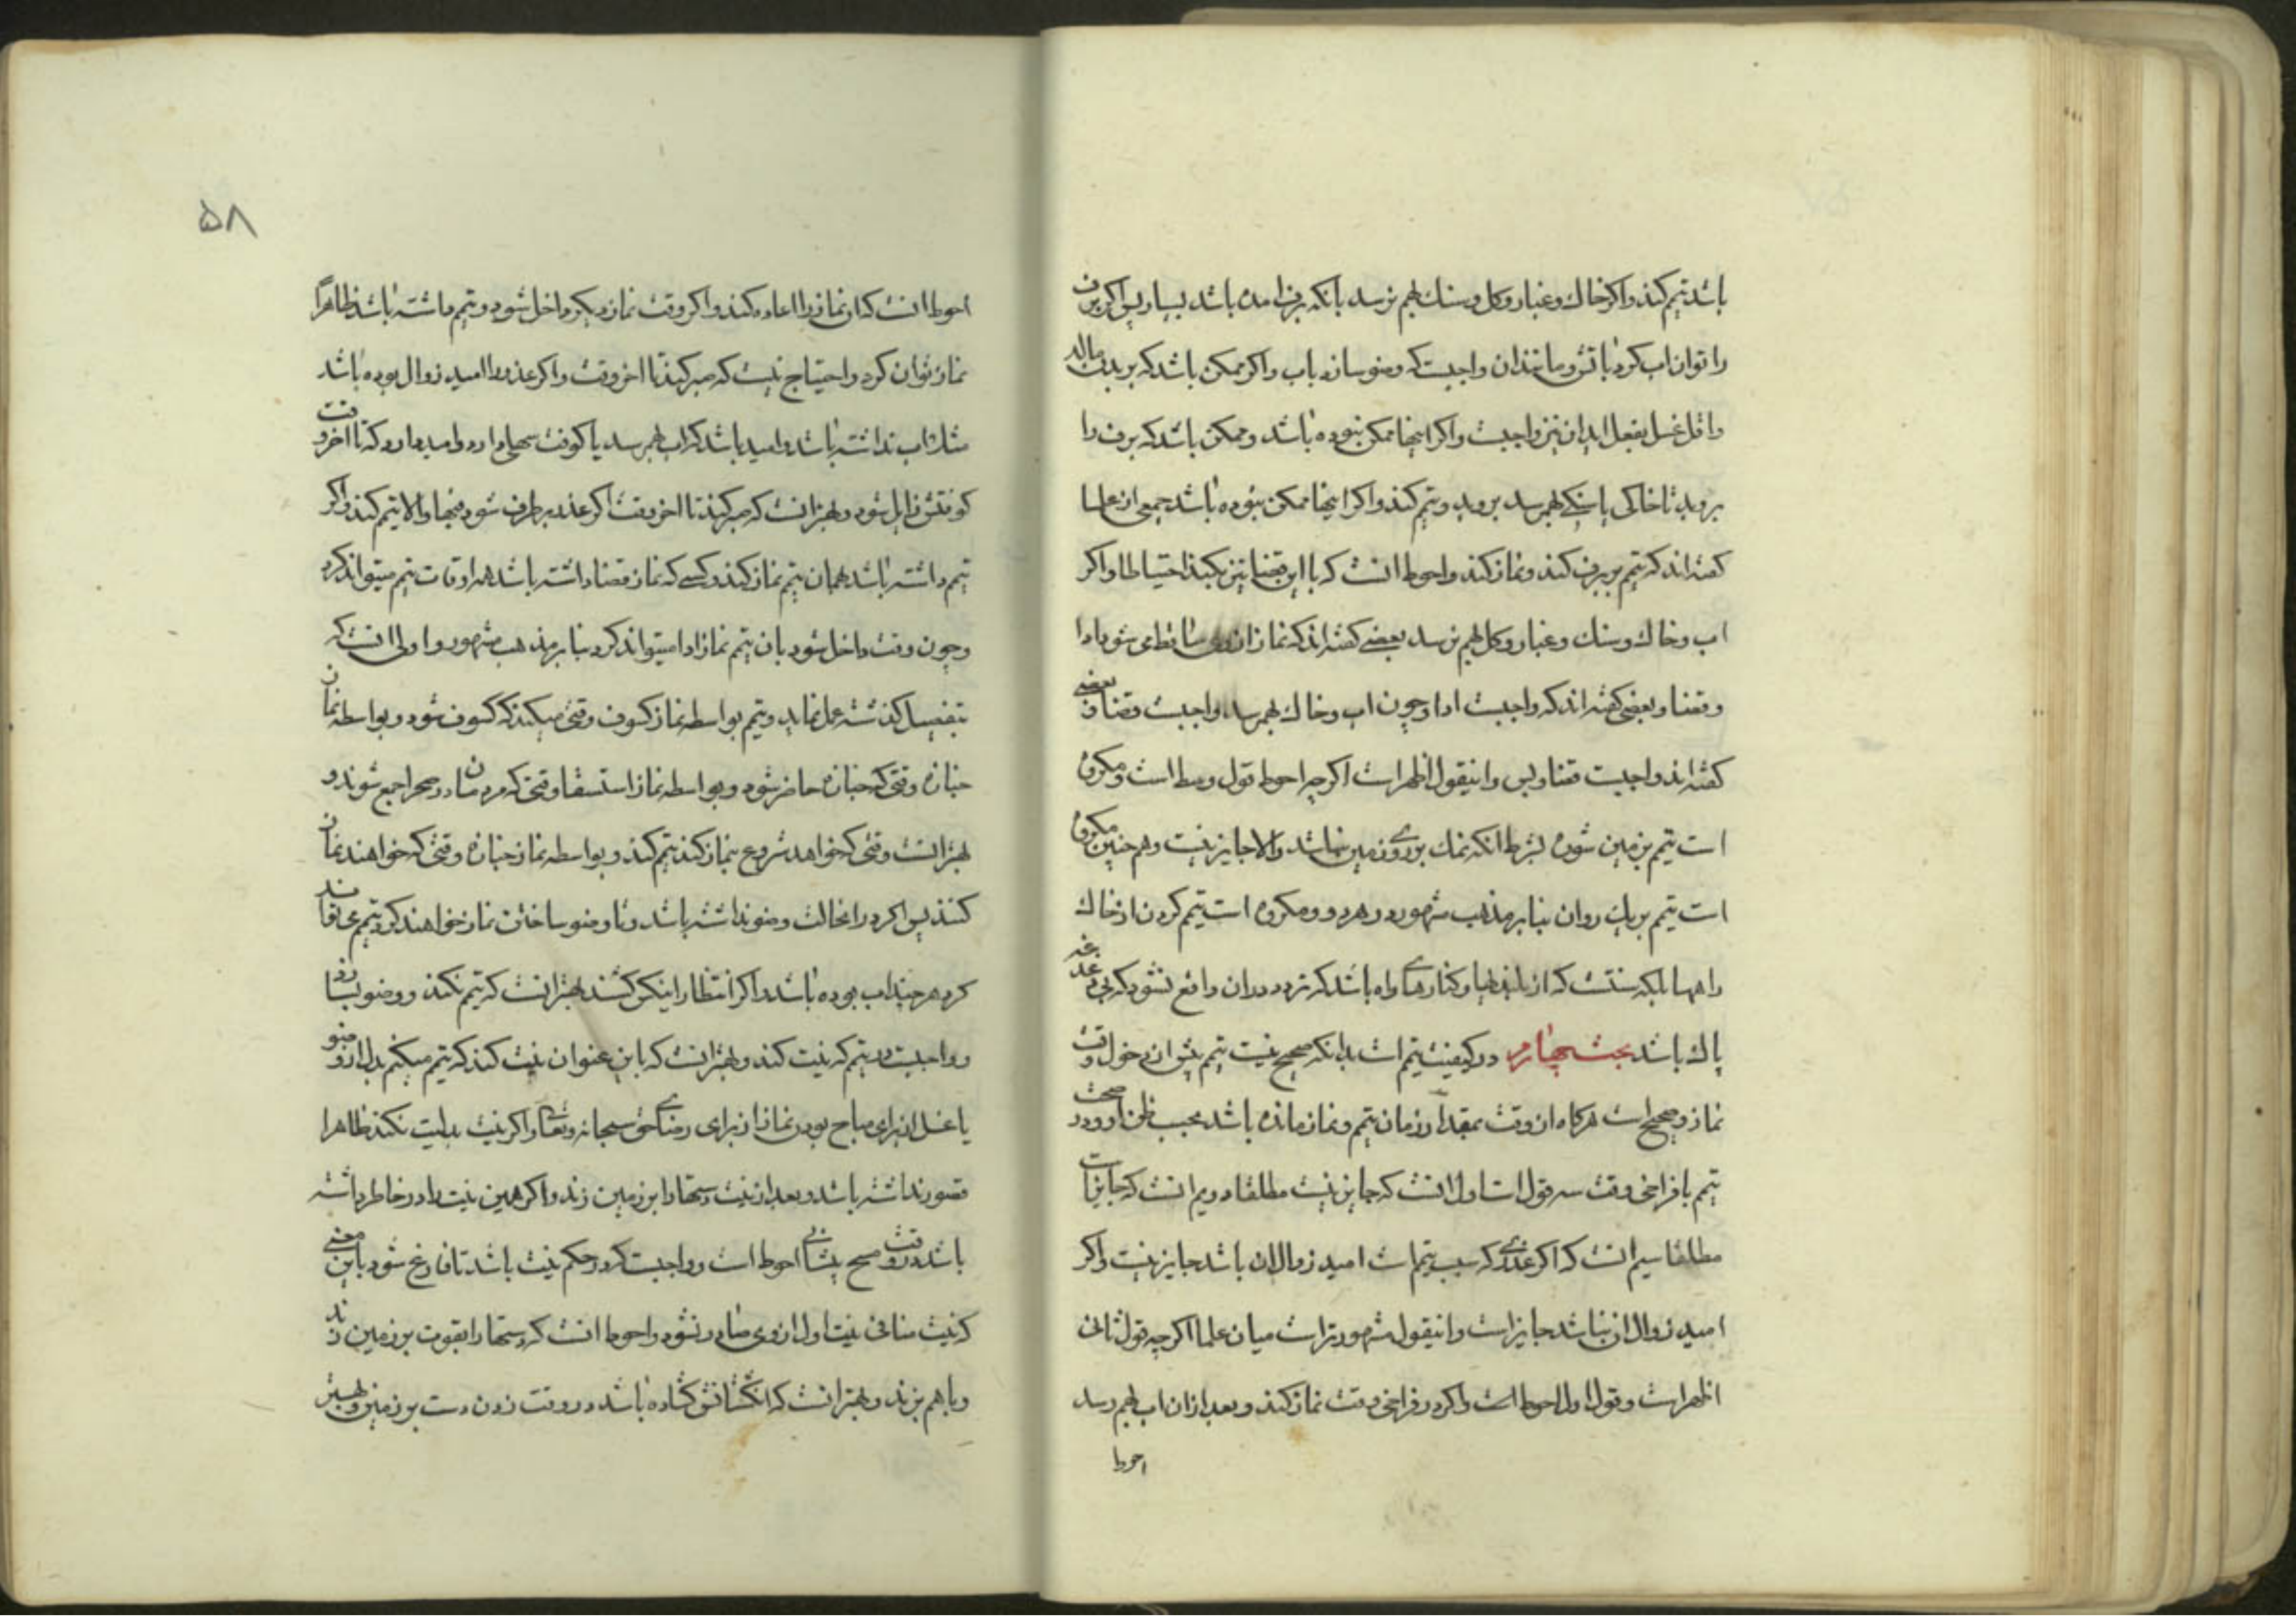 باشد تیمم کند و اکر خاك و غبار و کل و سنك بهم نرسد بانکه برف امده باشد بسیار پس اکر برف
را توان اب کرد باتش و مانند ان واجبست که وضو سازد باب و اکر ممکن باشد که بر بدن مالد
و اقل غسل بفعل اید ان نیز واجبست و اکر اینها ممکن نبوده باشد و ممکن باشد که برف را
بروبد تا خاکی یا سنکی بهم رسد بروبد و تیمم کند و اکر اینها ممکن نبوده باشد جمعی از علما
کفته اند که تیمم بر برف کند و نماز کند و احوط انست که با این قضا نیز بکند احتیاطا و اکر
اب و خاك و سنك و غبار و کل بهم نرسد بعضی کفته اند که نماز از وی ساقط می شود ادا
و قضا و بعضی کفته اند که واجبست ادا و چون اب و خاك بهم رسد واجبست قضا و بعضی
کفته اند واجبست قضا و بس و اینقول اظهر است اکر چه احوط قول وسط است و مکروه
است تیمم بزمین شوره بشرط انکه نمك بر روی زمین نباشد و الا جایز نیست و هم چنین مکروه
است تیمم بریك روان بنابر مذهب مشهور در هر دو و مکروه است تیمم کردن از خاك
راهها بلکه سنتست که از بلندیها و کنارهای راه باشد که تردد در ان واقع نشود که بی دغدغه
پاك باشد بحث چهارم در کیفیت تیمم است بدانکه صحیح نیست تیمم پیش از دخول وقت
نماز و صحیح است هرکاه از وقت بمقدار زمان تیمم و نماز مانده باشد بحسب ظن او و در صحت
تیمم با فراخی وقت سه قول است اول انست که جایز نیست مطلقا دویم انست که جایز است
مطلقا سیم انست که اکر عذری که سبب تیمم است امید زوال ان باشد جایز نیست و اکر
امید زوال ان نباشد جایز است و اینقول مشهورتر است میان علما اکر چه قول ثانی
اظهر است و قول اول احوط است و اکر در فراخی وقت نماز کند و بعد از ان اب بهم رسد
احوط
۵۸
احوط انست که ان نماز را اعاده کند و اکر وقت نماز دیکر داخل شود و تیمم داشته باشد ظاهراً
نماز توان کرد و احتیاج نیست که صبر کند تا اخر وقت و اکر عذر را امید زوال بوده باشد
مثل اب نداشته باشد و امید باشد که اب بهم رسد یا کوفت سهلی دارد و امید دارد که تا اخر وقت
کوفتش زایل شود و بهتر انست که صبر کند تا اخر وقت اکر عذر برطرف شود فبها و الا تیمم کند و اکر
تیمم داشته باشد بهمان تیمم نماز کند و کسی که نماز قضا داشته باشد همه اوقات تیمم میتواند کرد
و چون وقت داخل شود بان تیمم نماز ادا میتواند کرد بنابر مذهب مشهور و اولی انست که
بتفصیل کذشته عمل نماید و تیمم بواسطه نماز کسوف وقتی میکند که کسوف شود و بواسطه نماز
جنازه وقتی که جنازه حاضر شود و بواسطه نماز استسقا وقتی که مردمان در صحرا جمع شوند و
بهتر انست وقتی که خواهد شروع بنماز کند تیمم کند و بواسطه نماز جنازه وقتی که خواهند نماز
کنند پس اکر در انحالت وضو نداشته باشد و تا وضو ساختن نماز خواهند کرد تیمم می تواند
کرد هر چند اب بوده باشد و اکر انتظار اینکس کشند بهتر انست که تیمم نکند و وضو بسازد
و واجبست در تیمم که نیت کند و بهتر انست که باین عنوان نیت کند که تیمم میکنم بدل از وضو
یا غسل از برای مباح بودن نماز از برای رضای حق سبحانه و تعالی و اکر نیت بدلیت نکند ظاهرا
قصور نداشته باشد و بعد از نیت دستها را بر زمین زند و اکر همین نیت را در خاطر داشته
باشد در وقت مسح پیشانی احوط است و واجبست که در حکم نیت باشد تا فارغ شود باین معنی
که نیت منافی نیت اول از وی صادر نشود و احوط انست که دستها را بقوت بر زمین زند
و با هم بزند و بهتر انست که انکشتانش کشاده باشد در وقت زدن دست بر زمین و بهتر